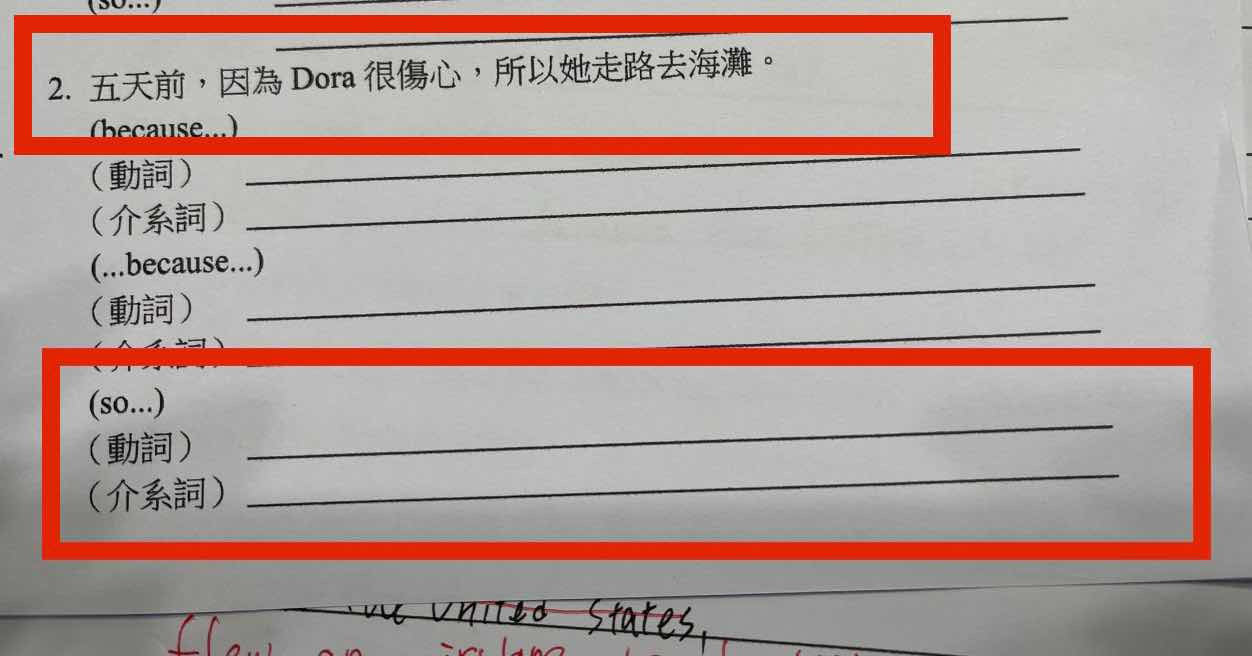 (so...)
2. 五天前，因為 Dora 很傷心，所以她走路去海灘。
(because...)
（動詞）
（介系詞）
(...because...)
（動詞）
（介系詞）
(so...)
（動詞）
（介系詞）
the United States,
flew an